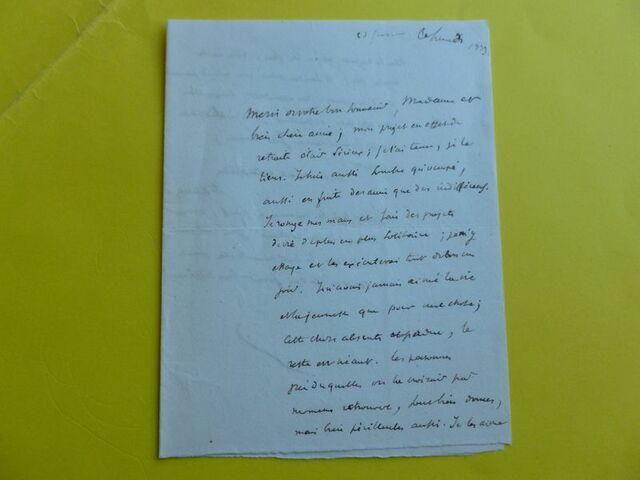 ce lundi 1839
Merci de votre bon souvenir, Madame et
bien chère amie ; mon projet en effet de
retraite était sérieux ; je l'ai tenu, je le
tiens. Je suis aussi sombre qu'occupé,
aussi en fuite des amis que des indifférens.
Je ronge mes maux et fais des projets
de vie de plus en plus solitaire ; j'en
et je les exécuterai tout de bon un
jour. Je n'avais jamais aimé la vie
et la jeunesse que pour une chose ;
cette chose absente et perdue, le
reste est néant. Les personnes
près desquelles on la croirait par
momens retrouver, sont bien bonnes,
mais bien périlleuses aussi. Je les aime